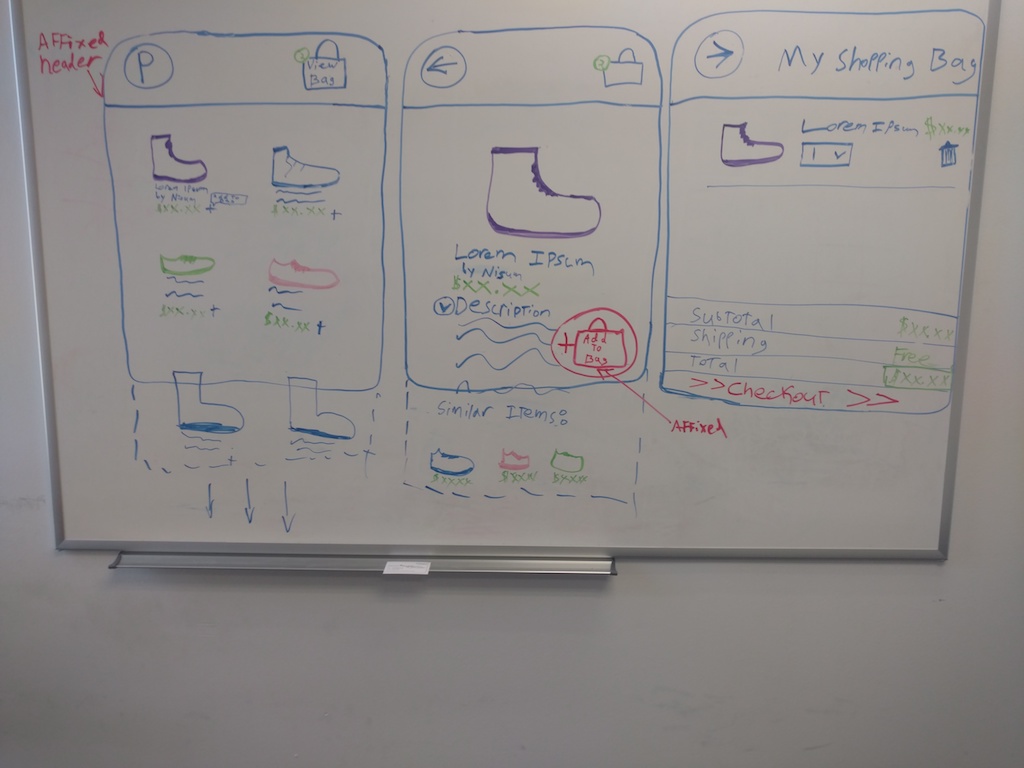 Affixed
header
P
View
Bag
Lorem Ipsum
by Nisum
$xx.xx +
$xx.xx +
$xx.xx +
$xx.xx +
+
Lorem Ipsum
by Nisum
$xx.xx
Description
+
Add
To
Bag
Affixed
Similar Items:
$xxxx
$xxx
$xxxx
My Shopping Bag
Lorem Ipsum $xx.xx
1
SubTotal $xx.xx
Shipping Free
Total $xx.xx
>>Checkout >>